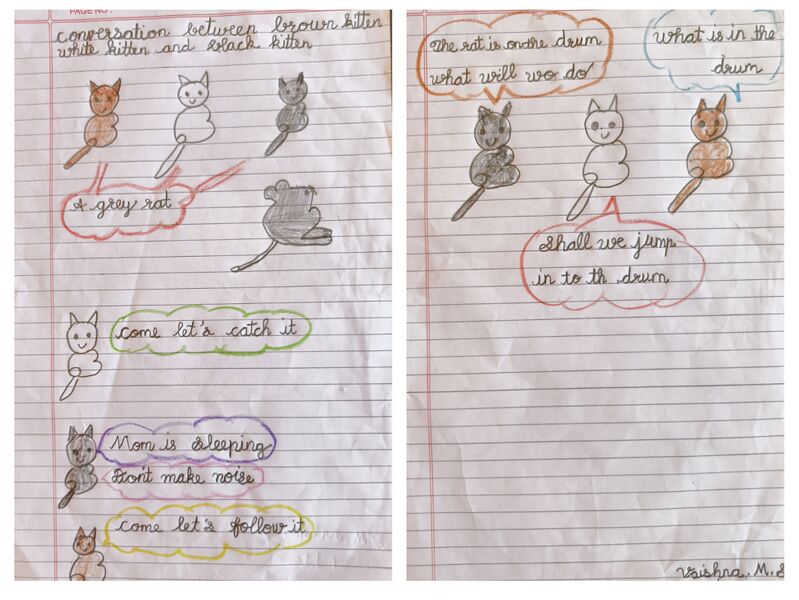 PAGE NO:
conversation between brown kitten
white kitten and black kitten
A grey rat
come let's catch it
Mom is sleeping
Don't make noise
come let's follow it
The rat is on the drum
what will wo do
what is in the
drum
Shall we jump
in to th drum
Vaishna. M. S